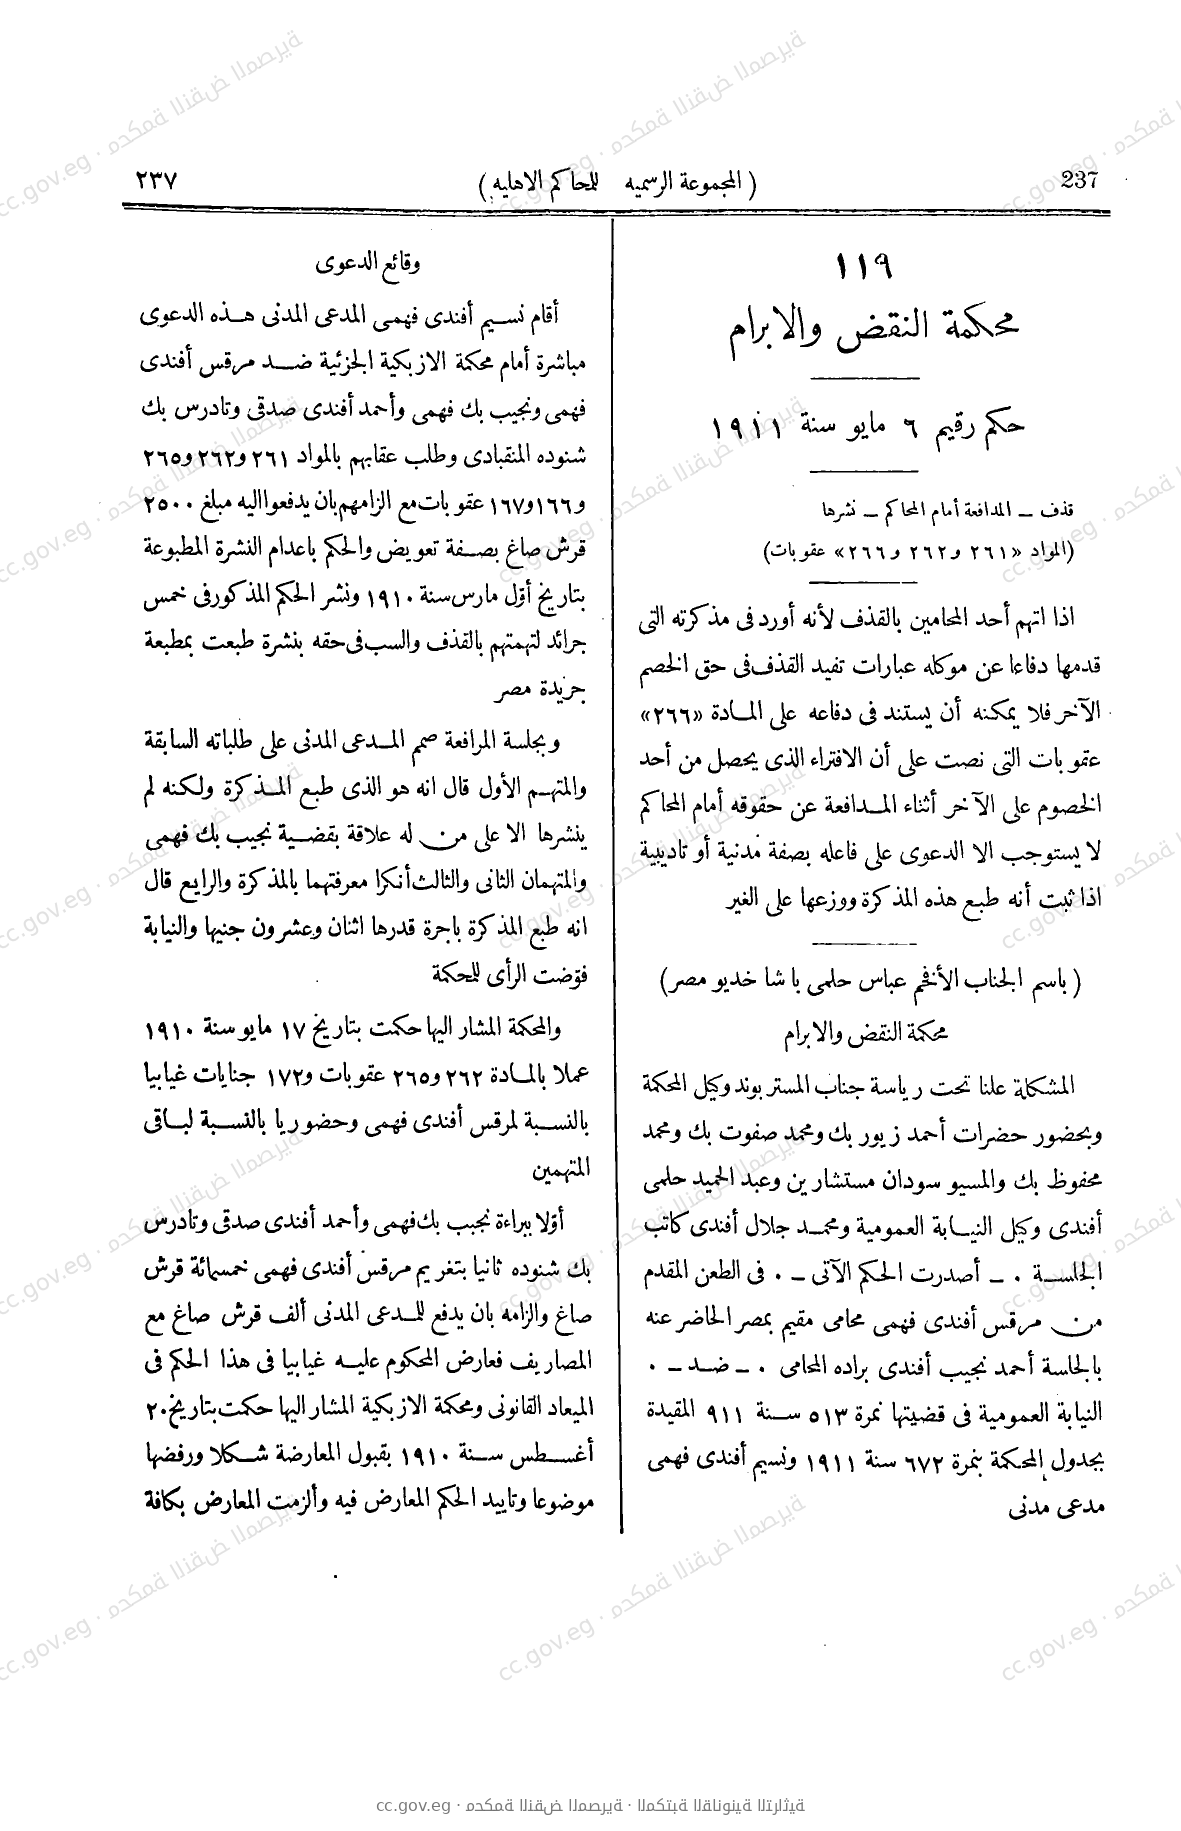 237
( المجموعة الرسميه للمحاكم الاهليه )
٢٣٧
١١٩
محكمة النقض والابرام
حكم رقيم ٦ مايو سنة ١٩١١
قذف ــ المدافعة أمام المحاكم ــ نشرها
(المواد «٢٦١ و٢٦٢ و٢٦٦» عقوبات)
اذا اتهم أحد المحامين بالقذف لأنه أورد فى مذكرته التى
قدمها دفاعا عن موكله عبارات تفيد القذف فى حق الخصم
الآخر فلا يمكنه أن يستند فى دفاعه على المادة «٢٦٦»
عقوبات التى نصت على أن الافتراء الذى يحصل من أحد
الخصوم على الآخر أثناء المدافعة عن حقوقه أمام المحاكم
لا يستوجب الا الدعوى على فاعله بصفة مدنية أو تاديبية
اذا ثبت أنه طبع هذه المذكرة ووزعها على الغير
( باسم الجناب الأفخم عباس حلمى باشا خديو مصر)
محكمة النقض والابرام
المشكلة علنا تحت رياسة جناب المستر بوند وكيل المحكمة
وبحضور حضرات أحمد زيور بك ومحمد صفوت بك ومحمد
محفوظ بك والمسيو سودان مستشارين وعبد الحميد حلمى
أفندى وكيل النيابة العمومية ومحمد جلال أفندى كاتب
الجلسة ٠ ــ أصدرت الحكم الآتى ــ ٠ فى الطعن المقدم
من مرقس أفندى فهمى محامى مقيم بمصر الحاضر عنه
بالجلسة أحمد نجيب أفندى براده المحامى ٠ ــ ضد ــ ٠
النيابة العمومية فى قضيتها نمرة ٥١٣ سنة ٩١١ المقيدة
بجدول المحكمة بنمرة ٦٧٢ سنة ١٩١١ ونسيم أفندى فهمى
مدعى مدنى
وقائع الدعوى
أقام نسيم أفندى فهمى المدعى المدنى هذه الدعوى
مباشرة أمام محكمة الازبكية الجزئية ضد مرقس أفندى
فهمى ونجيب بك فهمى وأحمد أفندى صدقى وتادرس بك
شنوده المنقبادى وطلب عقابهم بالمواد ٢٦١ و٢٦٢ و٢٦٥
و١٦٦ و١٦٧ عقوبات مع الزامهم بان يدفعوا اليه مبلغ ٢٥٠٠
قرش صاغ بصفة تعويض والحكم باعدام النشرة المطبوعة
بتاريخ أوّل مارس سنة ١٩١٠ ونشر الحكم المذكور فى خمس
جرائد لتهمتهم بالقذف والسب فى حقه بنشرة طبعت بمطبعة
جريدة مصر
وبجلسة المرافعة صمم المدعى المدنى على طلباته السابقة
والمتهم الأول قال انه هو الذى طبع المذكرة ولكنه لم
ينشرها الا على من له علاقة بقضية نجيب بك فهمى
والمتهمان الثانى والثالث أنكرا معرفتهما بالمذكرة والرابع قال
انه طبع المذكرة باجرة قدرها اثنان وعشرون جنيها والنيابة
فوّضت الرأى للمحكمة
والمحكمة المشار اليها حكمت بتاريخ ١٧ مايو سنة ١٩١٠
عملا بالمادة ٢٦٢ و٢٦٥ عقوبات و١٧٢ جنايات غيابيا
بالنسبة لمرقس أفندى فهمى وحضوريا بالنسبة لباقى
المتهمين
أوّلا ببراءة نجيب بك فهمى وأحمد أفندى صدقى وتادرس
بك شنوده ثانيا بتغريم مرقس أفندى فهمى خمسمائة قرش
صاغ والزامه بان يدفع للمدعى المدنى ألف قرش صاغ مع
المصاريف فعارض المحكوم عليه غيابيا فى هذا الحكم فى
الميعاد القانونى ومحكمة الازبكية المشار اليها حكمت بتاريخ ٢٠
أغسطس سنة ١٩١٠ بقبول المعارضة شكلا ورفضها
موضوعا وتاييد الحكم المعارض فيه وألزمت المعارض بكافة
cc.gov.eg · محكمة النقض المصرية · المكتبة القانونية التراثية